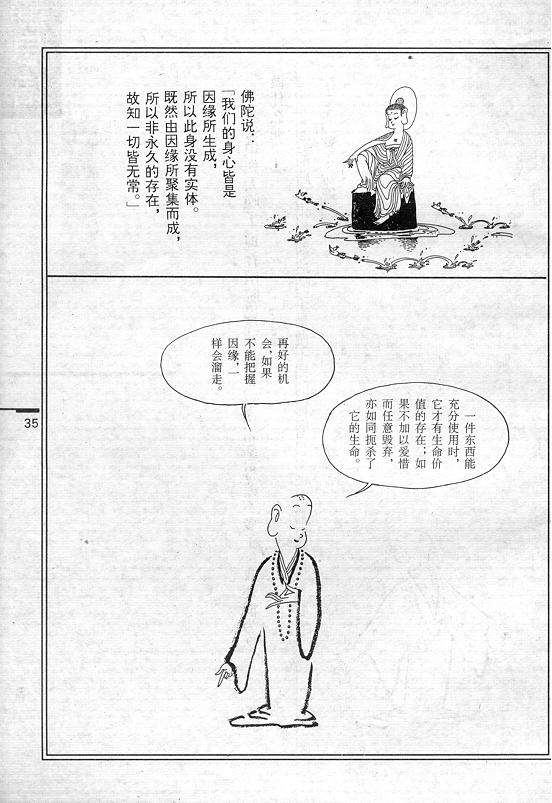 佛陀说：
「我们的身心皆是
因缘所生成，
所以此身没有实体。
既然由因缘所聚集而成，
所以非永久的存在，
故知一切皆无常。」
一件东西能
充分使用时，
它才有生命价
值的存在；如
果不加以爱惜
而任意毁弃，
亦如同扼杀了
它的生命。
再好的机
会，如果
不能把握
因缘，一
样会溜走。
35